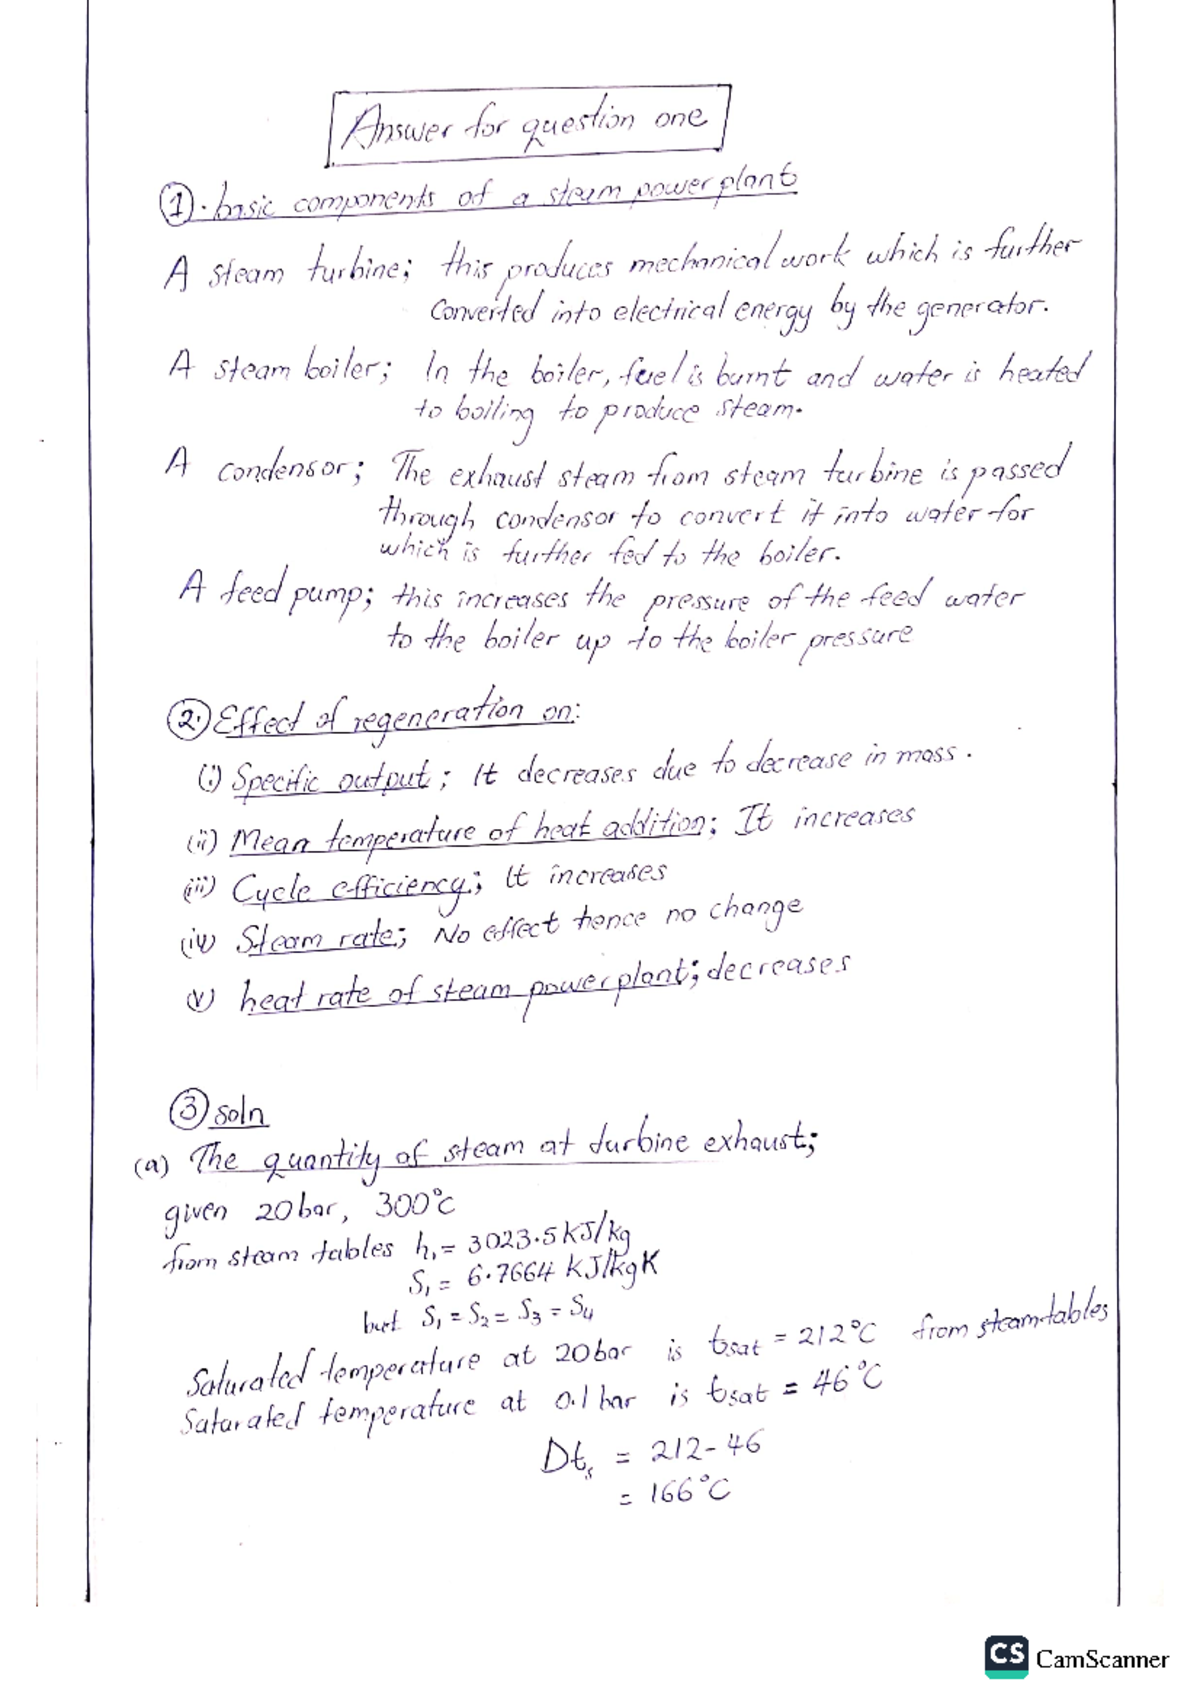 Answer for question one
①. basic components of a steam power plant
A steam turbine; this produces mechanical work which is further
Converted into electrical energy by the generator.
A steam boiler; In the boiler, fuel is burnt and water is heated
to boiling to produce steam.
A condensor; The exhaust steam from steam turbine is passed
through condensor to convert it into water for
which is further fed to the boiler.
A feed pump; this increases the pressure of the feed water
to the boiler up to the boiler pressure
②. Effect of regeneration on:
(i) Specific output; It decreases due to decrease in mass.
(ii) Mean temperature of heat addition; It increases
(iii) Cycle efficiency; It increases
(iv) Steam rate; No effect hence no change
(v) heat rate of steam power plant; decreases
③ soln
(a) The quantity of steam at turbine exhaust;
given 20bar, 300°C
from steam tables h₁ = 3023.5 kJ/kg
S₁ = 6.7664 kJ/kgK
but S₁ = S₂ = S₃ = S₄
Saturated temperature at 20bar is tsat = 212°C from steam tables
Saturated temperature at 0.1 bar is tsat = 46°C
Dts = 212 - 46
= 166°C
CS CamScanner